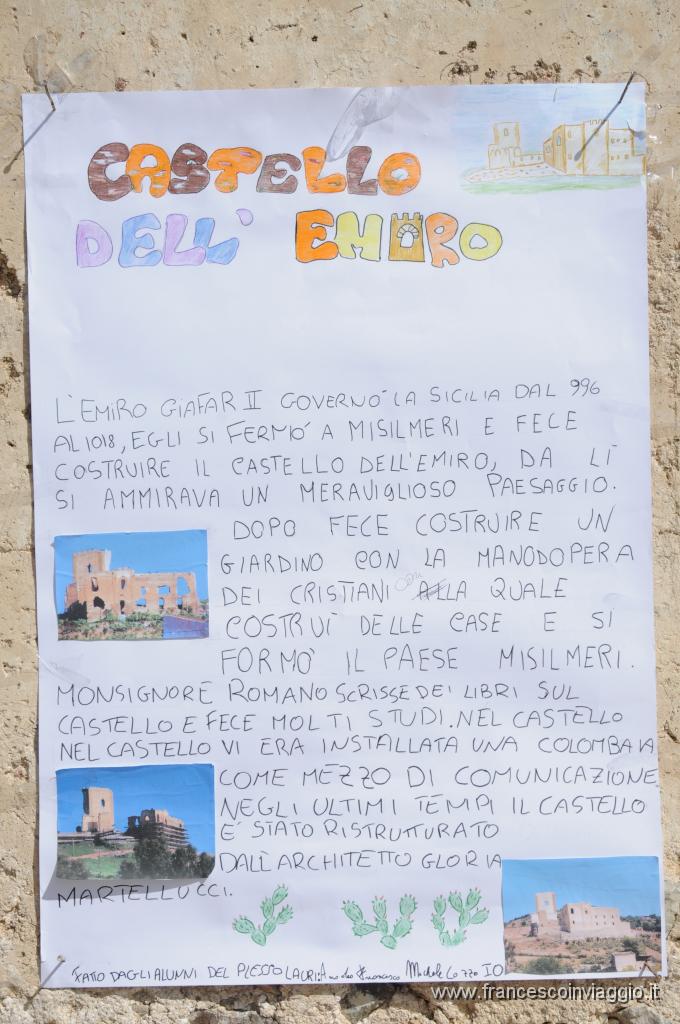 CASTELLO
DELL' EMIRO
L'EMIRO GIAFAR II GOVERNÒ LA SICILIA DAL 996
AL 1018, EGLI SI FERMÒ A MISILMERI E FECE
COSTRUIRE IL CASTELLO DELL'EMIRO, DA LÌ
SI AMMIRAVA UN MERAVIGLIOSO PAESAGGIO.
DOPO FECE COSTRUIRE UN
GIARDINO CON LA MANODOPERA
DEI CRISTIANI CON LA QUALE
COSTRUÌ DELLE CASE E SI
FORMÒ IL PAESE MISILMERI.
MONSIGNORE ROMANO SCRISSE DEI LIBRI SUL
CASTELLO E FECE MOLTI STUDI. NEL CASTELLO
NEL CASTELLO VI ERA INSTALLATA UNA COLOMBAIA
COME MEZZO DI COMUNICAZIONE
NEGLI ULTIMI TEMPI IL CASTELLO
E' STATO RISTRUTTURATO
DALL'ARCHITETTO GLORIA
MARTELLUCCI.
FATTO DAGLI ALUNNI DEL PLESSO LAURI: Francesco Michele Lo
www.francescoinviaggio.it